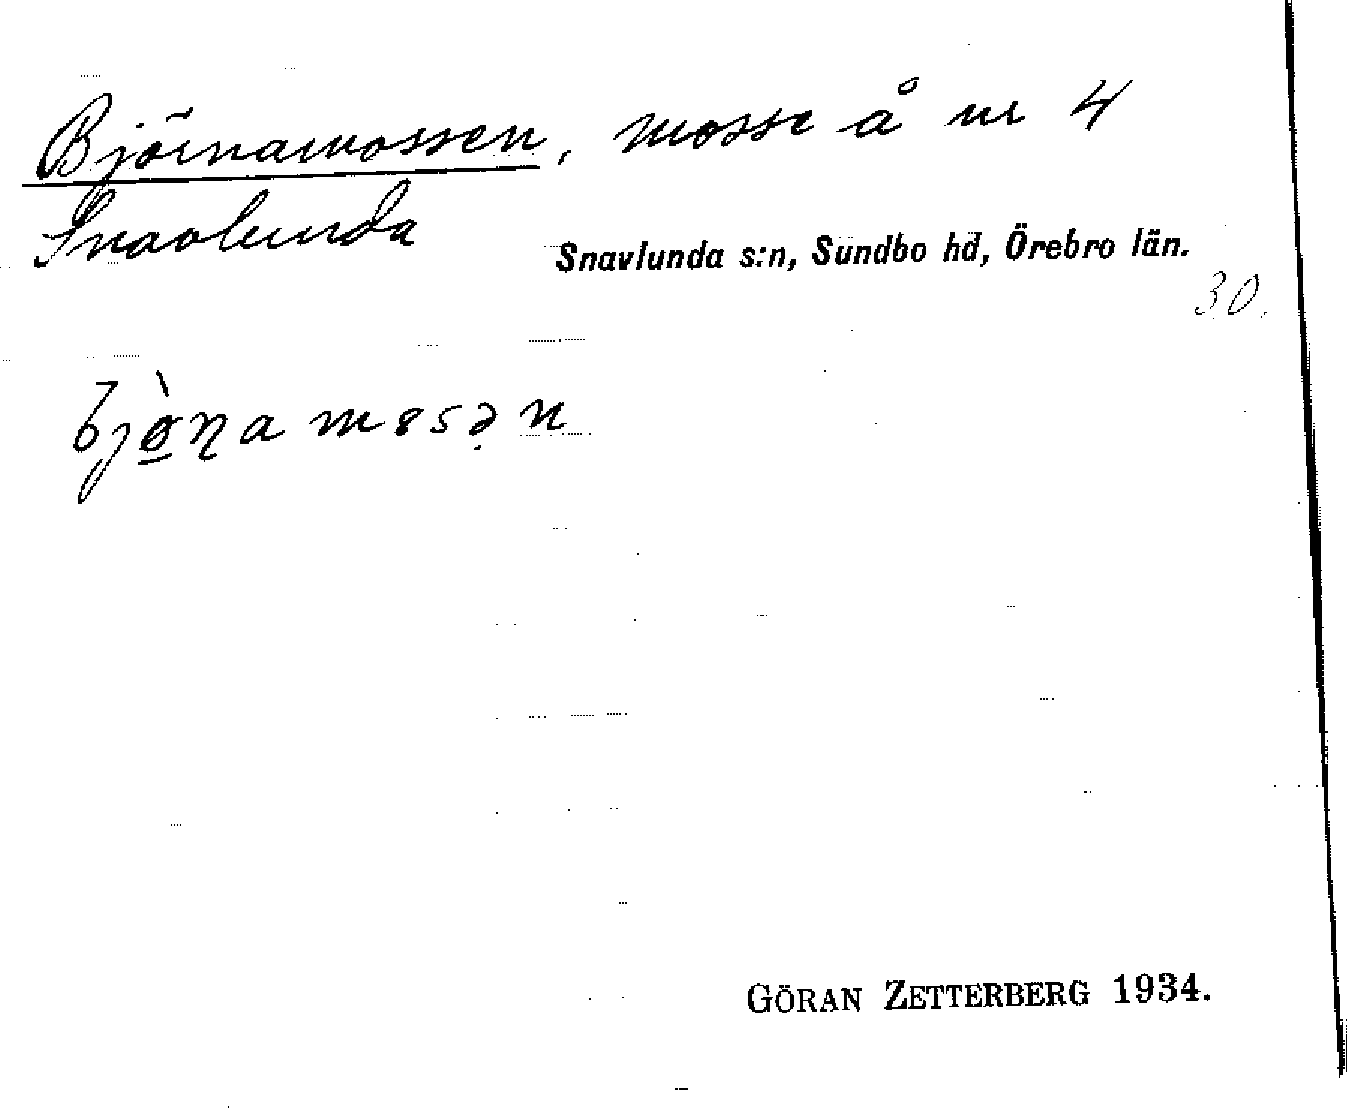 Björnamossen, mosse å nr 4
Snavlunda
Snavlunda s:n, Sundbo hd, Örebro län.
30.
bjø̠̀ɳa m8sən
GÖRAN ZETTERBERG 1934.